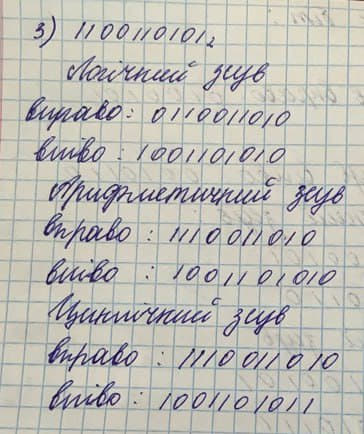 3) 1100110101₂
Логічний зсув
вправо: 0110011010
вліво: 1001101010
Арифметичний зсув
вправо: 1110011010
вліво: 1001101010
Циклічний зсув
вправо: 1110011010
вліво: 1001101011